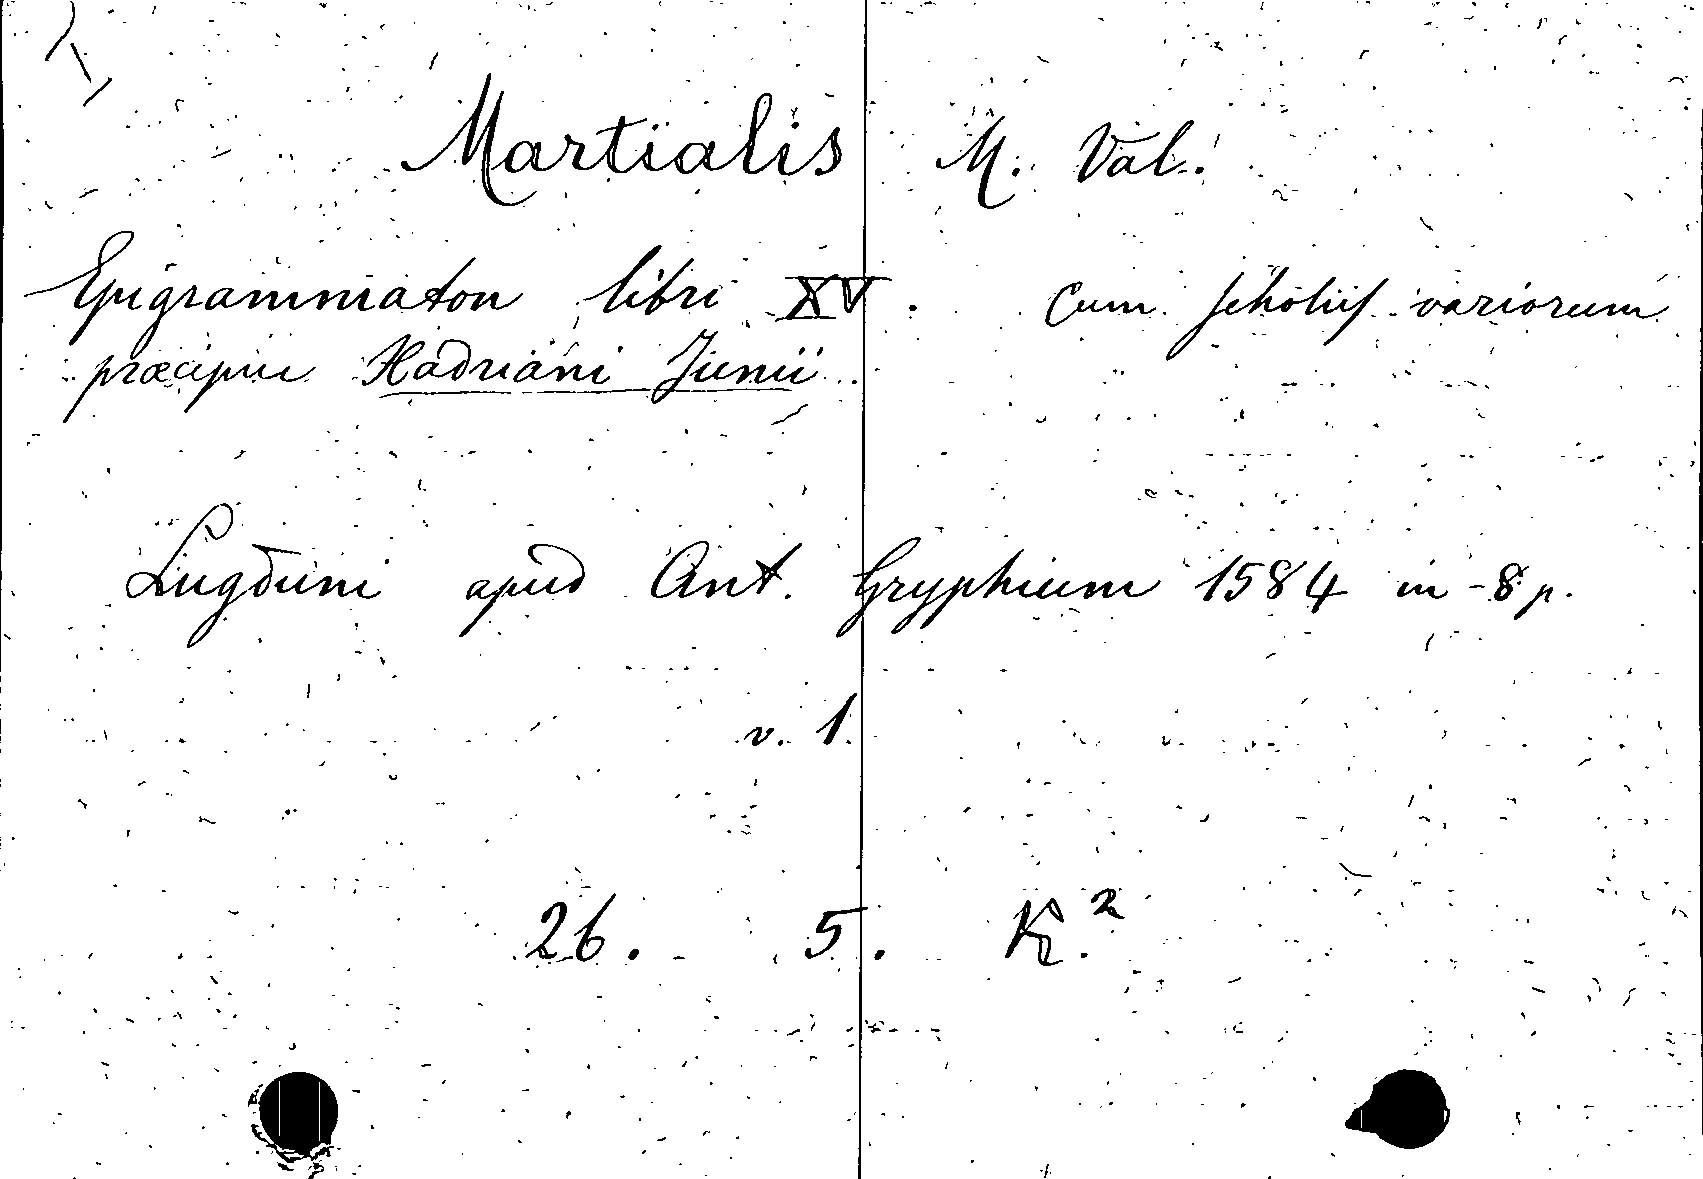 Martialis M. Val.
Epigrammaton libri XV. Cum scholiis variorum
præcipue Hadriani Junii.
Lugduni apud Ant. Gryphium 1584 in-8 p.
v. 1.
26. 5. K.²